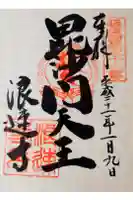 奉拝
平成二十一年一月九日
毘沙門天王
浪速寺